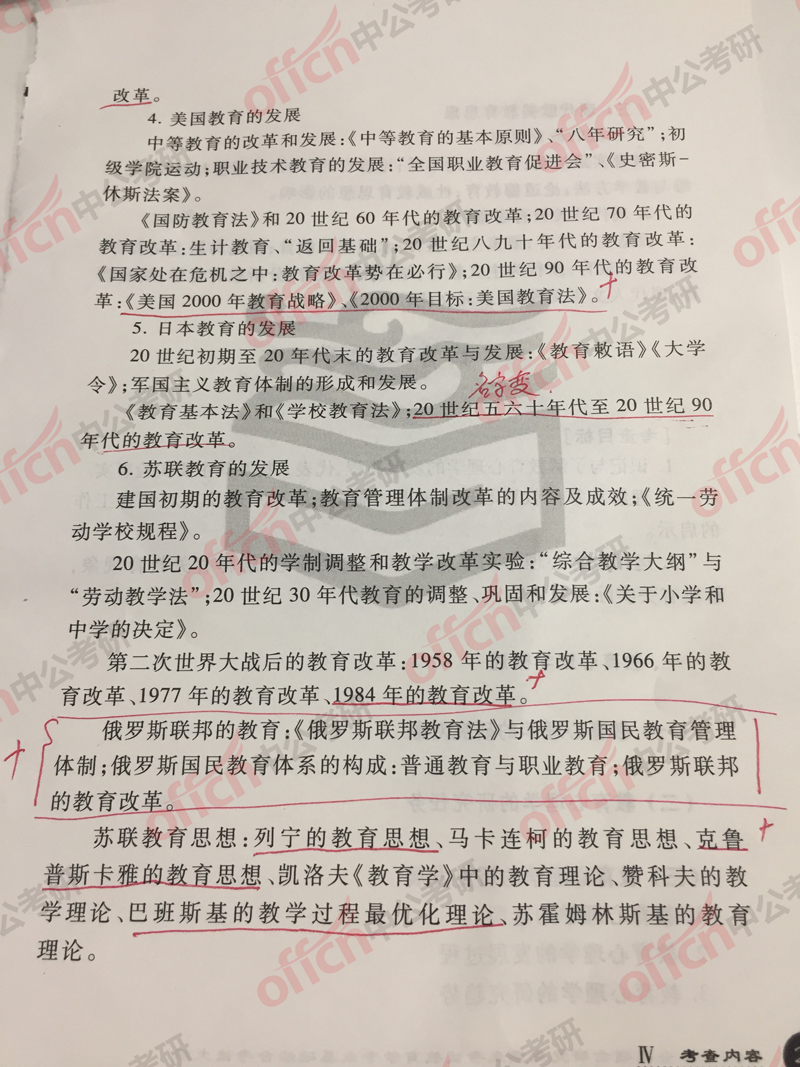 改革。
4. 美国教育的发展
中等教育的改革和发展:《中等教育的基本原则》、“八年研究”;初
级学院运动;职业技术教育的发展:“全国职业教育促进会”、《史密斯-
休斯法案》。
《国防教育法》和 20 世纪 60 年代的教育改革;20 世纪 70 年代的
教育改革:生计教育、“返回基础”;20 世纪八九十年代的教育改革:
《国家处在危机之中:教育改革势在必行》;20 世纪 90 年代的教育改
革:《美国 2000 年教育战略》、《2000 年目标:美国教育法》。
5. 日本教育的发展
20 世纪初期至 20 年代末的教育改革与发展:《教育敕语》《大学
令》;军国主义教育体制的形成和发展。
名字变
《教育基本法》和《学校教育法》;20 世纪五六十年代至 20 世纪 90
年代的教育改革。
6. 苏联教育的发展
建国初期的教育改革;教育管理体制改革的内容及成效;《统一劳
动学校规程》。
20 世纪 20 年代的学制调整和教学改革实验:“综合教学大纲”与
“劳动教学法”;20 世纪 30 年代教育的调整、巩固和发展:《关于小学和
中学的决定》。
第二次世界大战后的教育改革:1958 年的教育改革、1966 年的教
育改革、1977 年的教育改革、1984 年的教育改革。
俄罗斯联邦的教育:《俄罗斯联邦教育法》与俄罗斯国民教育管理
体制;俄罗斯国民教育体系的构成:普通教育与职业教育;俄罗斯联邦
的教育改革。
苏联教育思想:列宁的教育思想、马卡连柯的教育思想、克鲁
普斯卡雅的教育思想、凯洛夫《教育学》中的教育理论、赞科夫的教
学理论、巴班斯基的教学过程最优化理论、苏霍姆林斯基的教育
理论。
Ⅳ 考查内容
offcn中公考研